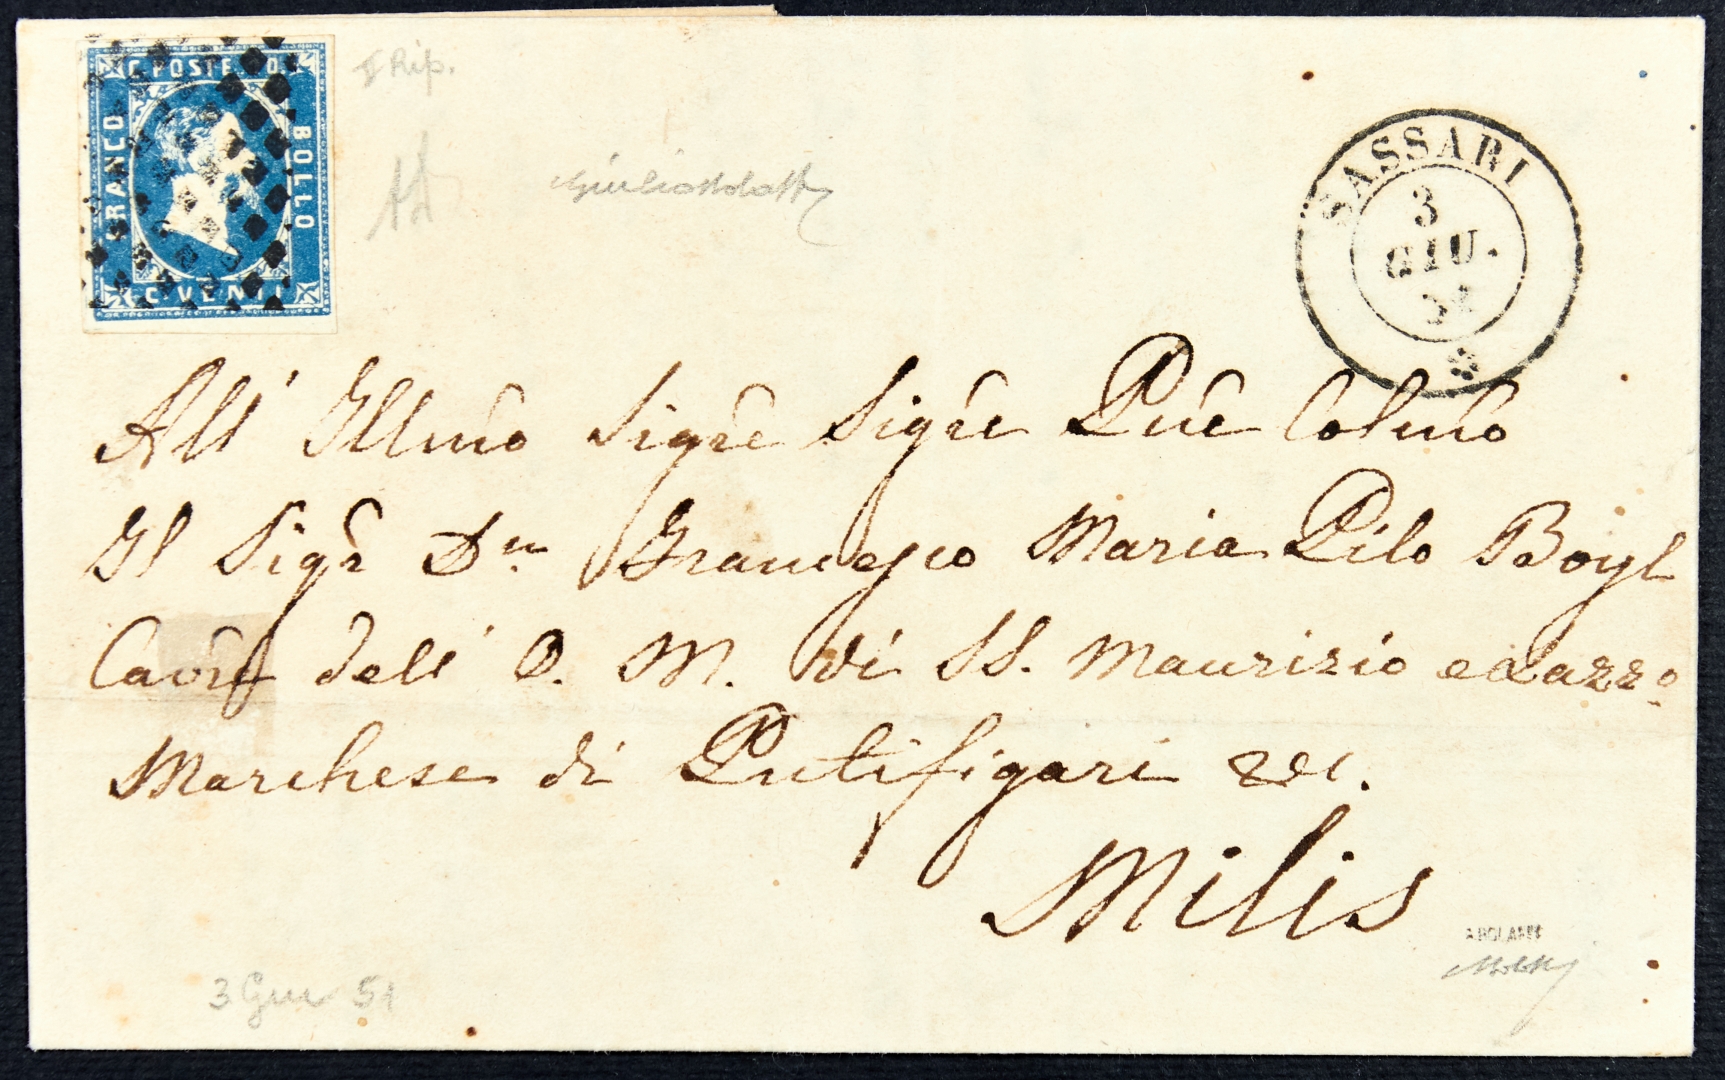 C. POSTE 10
FRANCO
BOLLO
C. VENTI
Rip.
SASSARI
3
GIU.
51
All' Illmo Sigre Sigre Pne Colmo
Il Sigr Dn Francesco Maria Pilo Boyl
Cavre dell' O. M. di SS. Maurizio e Lazzo
Marchese di Putifigari &c.
Milis
3 Giu 51